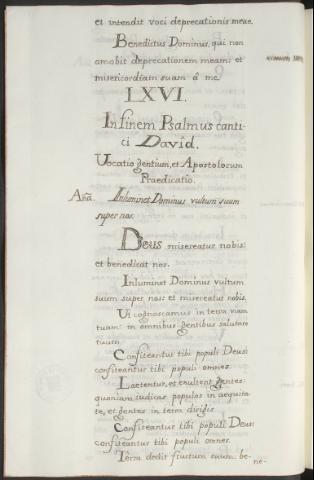 et intendit voci deprecationis meae.
Benedictus Dominus, qui non
amobit deprecationem meam: et
misericordiam suam á me.
LXVI.
In finem Psalmus canti-
ci David.
Vocatio gentium, et Apostolorum
Praedicatio.
Aña. Inluminet Dominus vultum suum
super nos.
Deus misereatur nobis:
et benedicat nos.
Inluminet Dominus vultum
suum super nos: et misereatur nobis.
Ut cognoscamus in terra viam
tuam: in omnibus gentibus salutare
tuum.
Confiteantur tibi populi Deus:
confiteantur tibi populi omnes.
Laetentur, et exultent gentes:
quoniam iudicas populos in aequita-
te, et gentes in terra dirigis.
Confiteantur tibi populi Deus
confiteantur tibi populi omnes.
Terra dedit fructum suum: be-
ne-